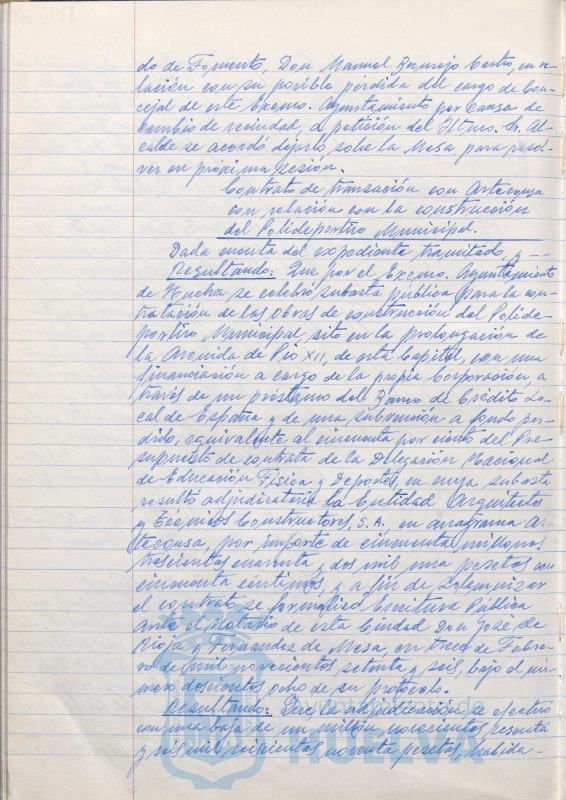 do de Fomento, Don Manuel Bermejo Castro, en re-
lación con su posible pérdida del cargo de Con-
cejal de este Excmo. Ayuntamiento por causa de
cambio de vecindad, a petición del Iltmo. Sr. Al-
calde se acordó dejarlo sobre la Mesa para resol-
ver en próxima sesión.
Contrato de transación con Arteconsa
con relación con la construcción
del Polideportivo Municipal.
Dada cuenta del expediente tramitado, y --
Resultando: Que por el Excmo. Ayuntamiento
de Huelva se celebró subasta pública para la con-
tratación de las obras de construcción del Polide-
portivo Municipal, sito en la prolongación de
la Avenida de Pío XII, de esta Capital, con una
financiación a cargo de la propia Corporación, a
través de un préstamo del Banco de Crédito Lo-
cal de España y de una subvención a fondo per-
dido, equivalente al cincuenta por ciento del Pre-
supuesto de contrata de la Delegación Nacional
de Educación Física y Deportes, en cuya subasta
resultó adjudicataria la Entidad Arquitecto
y Técnicos Constructores, S.A. en anagrama Ar-
teconsa, por importe de cincuenta millones
trescientas cuarenta y dos mil una pesetas con
cincuenta céntimos, y a fin de solemnizar
el contrato se formalizó Escritura Pública
ante el Notario de esta Ciudad Don José de
Rioja y Fernández de Mesa, en trece de Febre-
ro de mil novecientos setenta y seis, bajo el nú-
mero doscientos ocho de su protocolo.
Resultando: Que la adjudicación se efectuó
con una baja de un millón novecientas sesenta
y seis mil seiscientas noventa pesetas, habida-
Ayuntamiento de
HUELVA